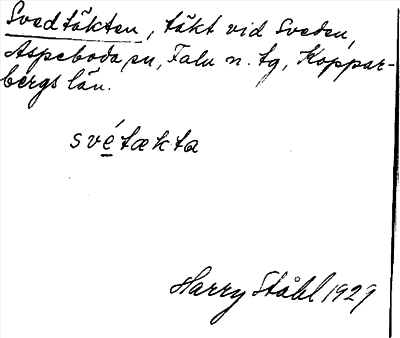 Svedtäkten, täkt vid Sveden,
Aspeboda sn, Falu n. tg, Koppar-
bergs län.
své̱tækta
Harry Ståhl 1929